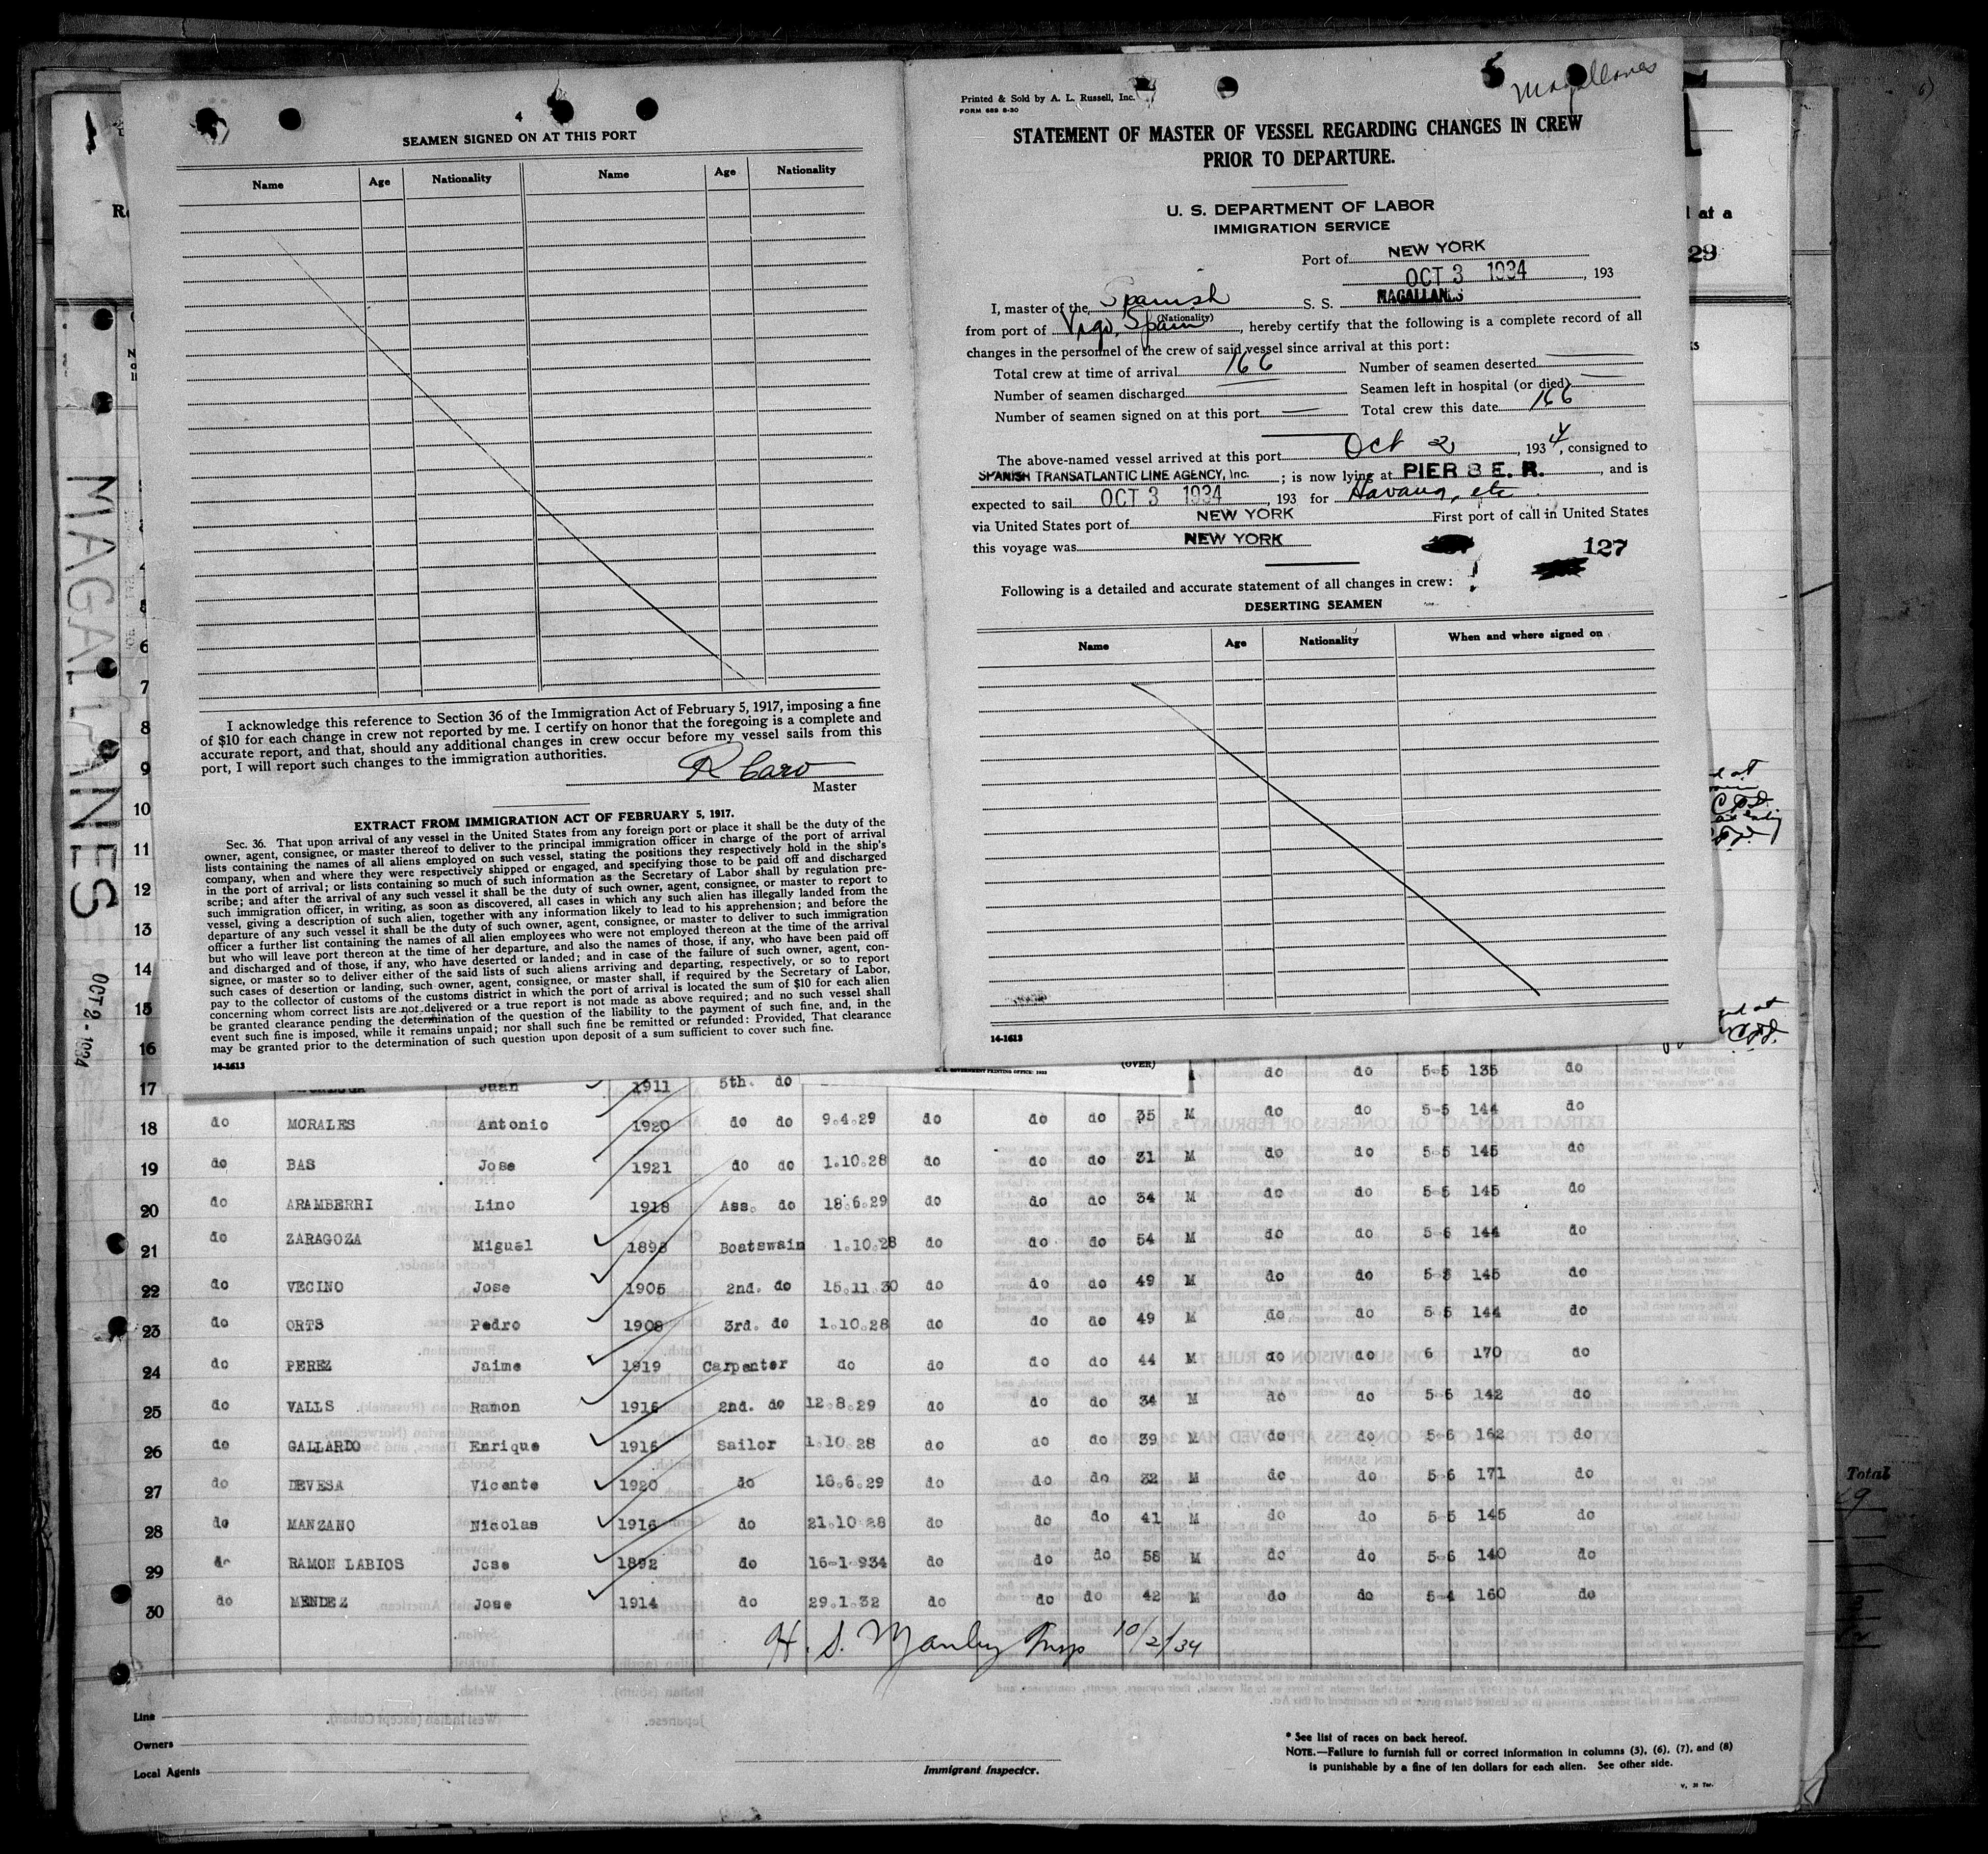 4
SEAMEN SIGNED ON AT THIS PORT
Name Age Nationality Name Age Nationality
I acknowledge this reference to Section 36 of the Immigration Act of February 5, 1917, imposing a fine
of $10 for each change in crew not reported by me. I certify on honor that the foregoing is a complete and
accurate report, and that, should any additional changes in crew occur before my vessel sails from this
port, I will report such changes to the immigration authorities.
R Caro
Master
EXTRACT FROM IMMIGRATION ACT OF FEBRUARY 5, 1917.
Sec. 36. That upon arrival of any vessel in the United States from any foreign port or place it shall be the duty of the
owner, agent, consignee, or master thereof to deliver to the principal immigration officer in charge of the port of arrival
lists containing the names of all aliens employed on such vessel, stating the positions they respectively hold in the ship's
company, when and where they were respectively shipped or engaged, and specifying those to be paid off and discharged
in the port of arrival; or lists containing so much of such information as the Secretary of Labor shall by regulation pre-
scribe; and after the arrival of any such vessel it shall be the duty of such owner, agent, consignee, or master to report to
such immigration officer, in writing, as soon as discovered, all cases in which any such alien has illegally landed from the
vessel, giving a description of such alien, together with any information likely to lead to his apprehension; and before the
departure of any such vessel it shall be the duty of such owner, agent, consignee, or master to deliver to such immigration
officer a further list containing the names of all alien employees who were not employed thereon at the time of the arrival
but who will leave port thereon at the time of her departure, and also the names of those, if any, who have been paid off
and discharged and of those, if any, who have deserted or landed; and in case of the failure of such owner, agent, con-
signee, or master so to deliver either of the said lists of such aliens arriving and departing, respectively, or so to report
such cases of desertion or landing, such owner, agent, consignee, or master shall, if required by the Secretary of Labor,
pay to the collector of customs of the customs district in which the port of arrival is located the sum of $10 for each alien
concerning whom correct lists are not delivered or a true report is not made as above required; and no such vessel shall
be granted clearance pending the determination of the question of the liability to the payment of such fine, and, in the
event such fine is imposed, while it remains unpaid; nor shall such fine be remitted or refunded: Provided, That clearance
may be granted prior to the determination of such question upon deposit of a sum sufficient to cover such fine.
14-1613
Magallanes
Printed & Sold by A. L. Russell, Inc.
FORM 689 8-30
STATEMENT OF MASTER OF VESSEL REGARDING CHANGES IN CREW
PRIOR TO DEPARTURE.
U. S. DEPARTMENT OF LABOR
IMMIGRATION SERVICE
Port of NEW YORK
OCT 3 1934, 193
I, master of the Spanish S. S. MAGALLANES
(Nationality)
from port of Vigo, Spain, hereby certify that the following is a complete record of all
changes in the personnel of the crew of said vessel since arrival at this port:
Total crew at time of arrival 166 Number of seamen deserted
Number of seamen discharged Seamen left in hospital (or died)
Number of seamen signed on at this port Total crew this date 166
The above-named vessel arrived at this port Oct 2, 1934, consigned to
SPANISH TRANSATLANTIC LINE AGENCY, Inc. ; is now lying at PIER 8 E. R., and is
expected to sail OCT 3 1934, 193 for Havana, etc.
via United States port of NEW YORK First port of call in United States
this voyage was NEW YORK
127
Following is a detailed and accurate statement of all changes in crew:
DESERTING SEAMEN
Name Age Nationality When and where signed on
14-1613
(OVER)
MAGALLANES OCT 2 - 1934
l at a
29
6
7
8
9
10
11
12
13
14
15
16
17 Juan 1911 5th. do do do 5-5 135 do
18 do MORALES Antonio 1920 do do 9.4.29 do do do 35 M do do 5-5 144 do
19 do BAS Jose 1921 do do 1.10.28 do do do 31 M do do 5-5 145 do
20 do ARAMBERRI Lino 1918 Ass. do 18.6.29 do do do 34 M do do 5-5 145 do
21 do ZARAGOZA Miguel 1898 Boatswain 1.10.28 do do do 54 M do do 5-6 144 do
22 do VECINO Jose 1905 2nd. do 15.11.30 do do do 49 M do do 5-8 145 do
23 do ORTS Pedro 1908 3rd. do 1.10.28 do do do 49 M do do 5-5 144 do
24 do PEREZ Jaime 1919 Carpenter do do do do 44 M do do 6 170 do
25 do VALLS Ramon 1916 2nd. do 12.8.29 do do do 34 M do do 5-6 142 do
26 do GALLARDO Enrique 1916 Sailor 1.10.28 do do do 39 M do do 5-6 162 do
27 do DEVESA Vicente 1920 do 18.6.29 do do do 32 M do do 5-6 171 do
28 do MANZANO Nicolas 1916 do 21.10.28 do do do 41 M do do 5-5 145 do
29 do RAMON LABIOS Jose 1892 do 16-1-934 do do do 58 M do do 5-6 140 do
30 do MENDEZ Jose 1914 do 29.1.32 do do do 42 M do do 5-4 160 do
H. S. Manley Insp 10/2/34
Total
Line
Owners
Local Agents
Immigrant Inspector.
* See list of races on back hereof.
NOTE.—Failure to furnish full or correct information in columns (3), (6), (7), and (8)
is punishable by a fine of ten dollars for each alien. See other side.